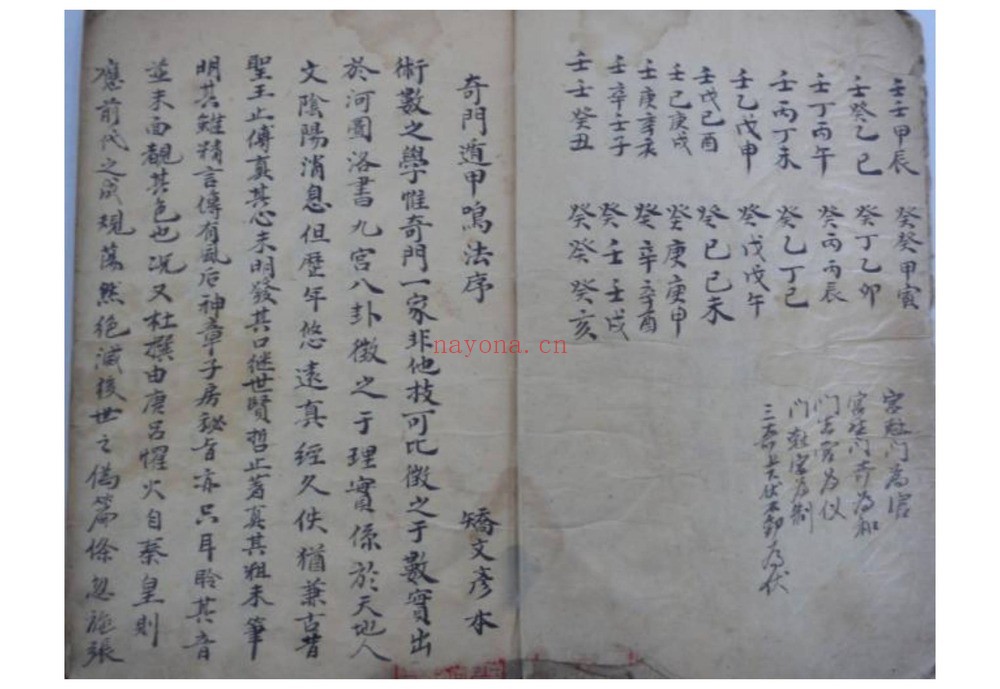 壬壬甲辰　癸癸甲寅
壬癸乙巳　癸丁乙卯
壬丁丙午　癸丙丙辰
壬丙丁未　癸乙丁巳
壬乙戊申　癸戊戊午
壬戊己酉　癸己己未
壬己庚戌　癸庚庚申
壬庚辛亥　癸辛辛酉
壬辛壬子　癸壬壬戌
壬壬癸丑　癸癸癸亥
宮 門為宮
宮生門 為和
門 宮為仪
门 宮为制
三 伏 为伏
奇門遁甲鳴法序　矯文彥本
術數之學惟奇門一家非他技可比徵之于數實出
於河圖洛書九宮八卦徵之于理實係於天地人
文陰陽消息但歷年悠遠真經久佚猶兼古昔
聖王止傳真其心未明發其口継世賢哲止著真其粗未筆
明其 精言傳有風后神章子房秘旨亦只耳聆其音
並未面覩其色也况又杜撰由唐呂懼火自秦皇則
應前代之成規蕩然絶滅後世之偽篇條忽施張
nayona.cn